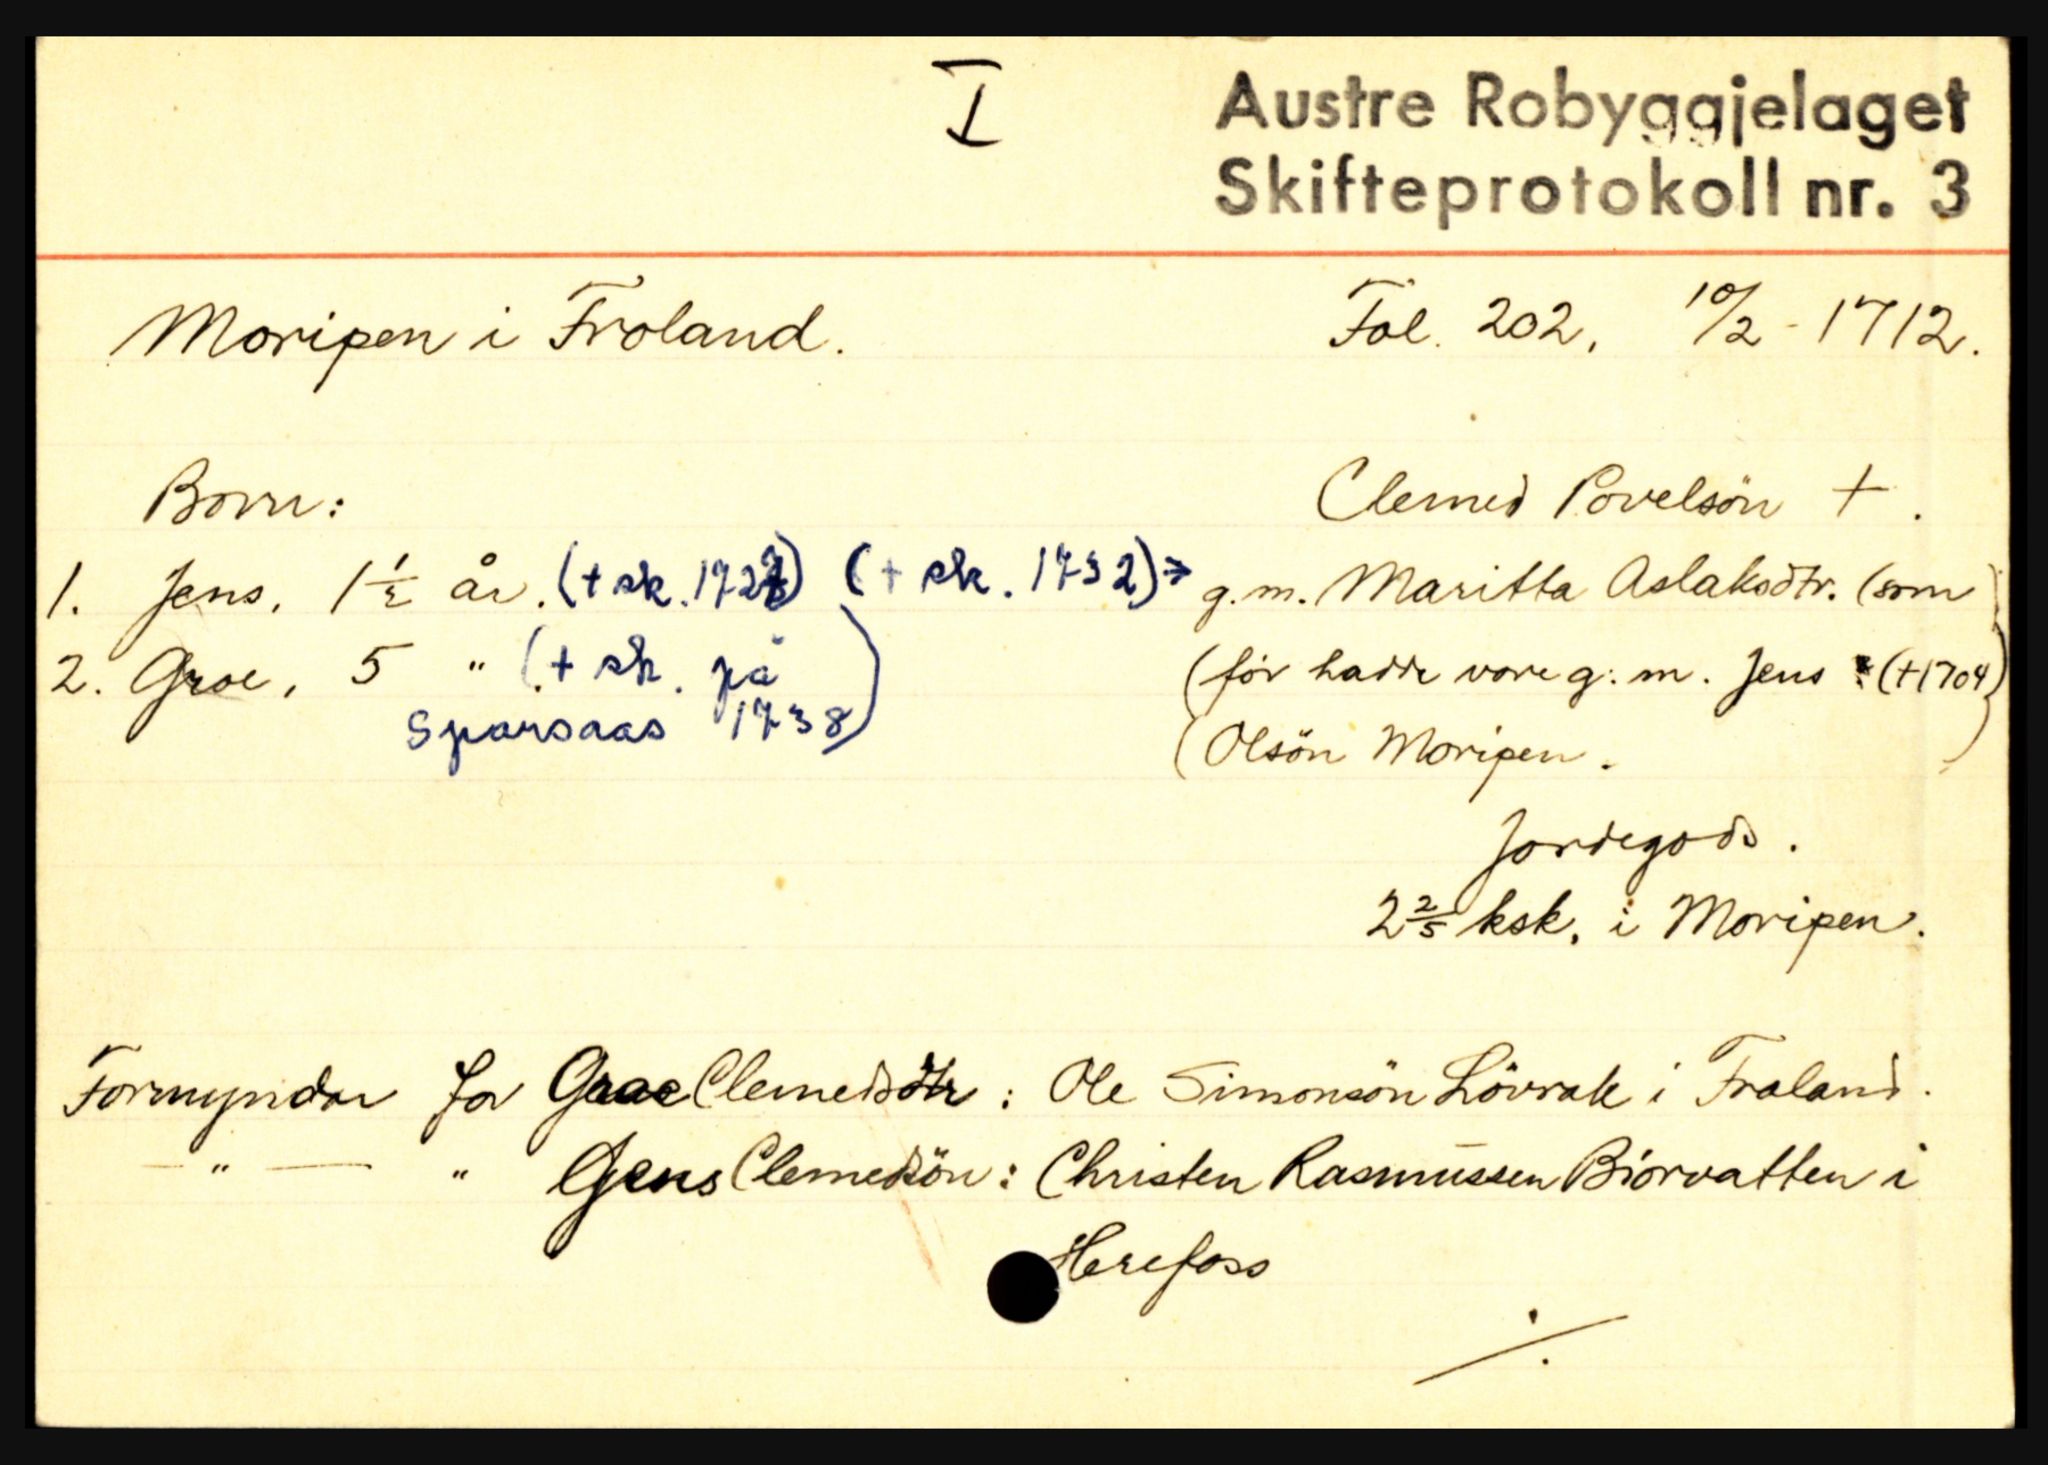 I
Austre Robyggjelaget
Skifteprotokoll nr. 3
Moripen i Froland.
Fol. 202, 10/2 - 1712.
Born:
Clemed Povelsön + .
1. Jens, 1 1/2 år. (+ sk. 172) (+ sk. 1732) →
g. m. Maritta Aslaksdtr. (som
2. Groe, 5 " (+ sk. på
Sparsaas 1738)
(för hadde vore g. m. Jens (+1704)
(Olsön Moripen.
Jordegods.
2 2/5 ksk. i Moripen.
Formyndar for Groe Clemedsdtr : Ole Simonsön Lövrak i Froland.
— " — " Jens Clemedsön : Christen Rasmussen Biorvatten i
Herefoss
./.